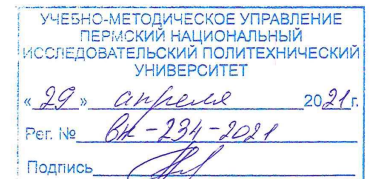 УЧЕБНО-МЕТОДИЧЕСКОЕ УПРАВЛЕНИЕ
ПЕРМСКИЙ НАЦИОНАЛЬНЫЙ
ИССЛЕДОВАТЕЛЬСКИЙ ПОЛИТЕХНИЧЕСКИЙ
УНИВЕРСИТЕТ
«29» апреля 2021 г.
Рег. № ВК-234-2021
Подпись